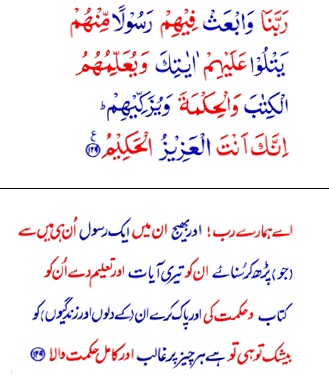 رَبَّنَا وَابْعَثْ فِيْهِمْ رَسُوْلًا مِّنْهُمْ
يَتْلُوْا عَلَيْهِمْ اٰيٰتِكَ وَيُعَلِّمُهُمُ
الْكِتٰبَ وَالْحِكْمَةَ وَيُزَكِّيْهِمْ ؕ
اِنَّكَ اَنْتَ الْعَزِيْزُ الْحَكِيْمُ ﴿۱۲۹﴾ ع
اے ہمارے رب! اور بھیج ان میں ایک رسول اُن ہی میں سے
(جو) پڑھ کر سُنائے ان کو تیری آیات اور تعلیم دے اُن کو
کتاب و حکمت کی اور پاک کرے ان (کے دلوں اور زندگیوں) کو
بیشک تو ہی تو ہے ہر چیز پر غالب اور کامل حکمت والا ﴿۱۲۹﴾